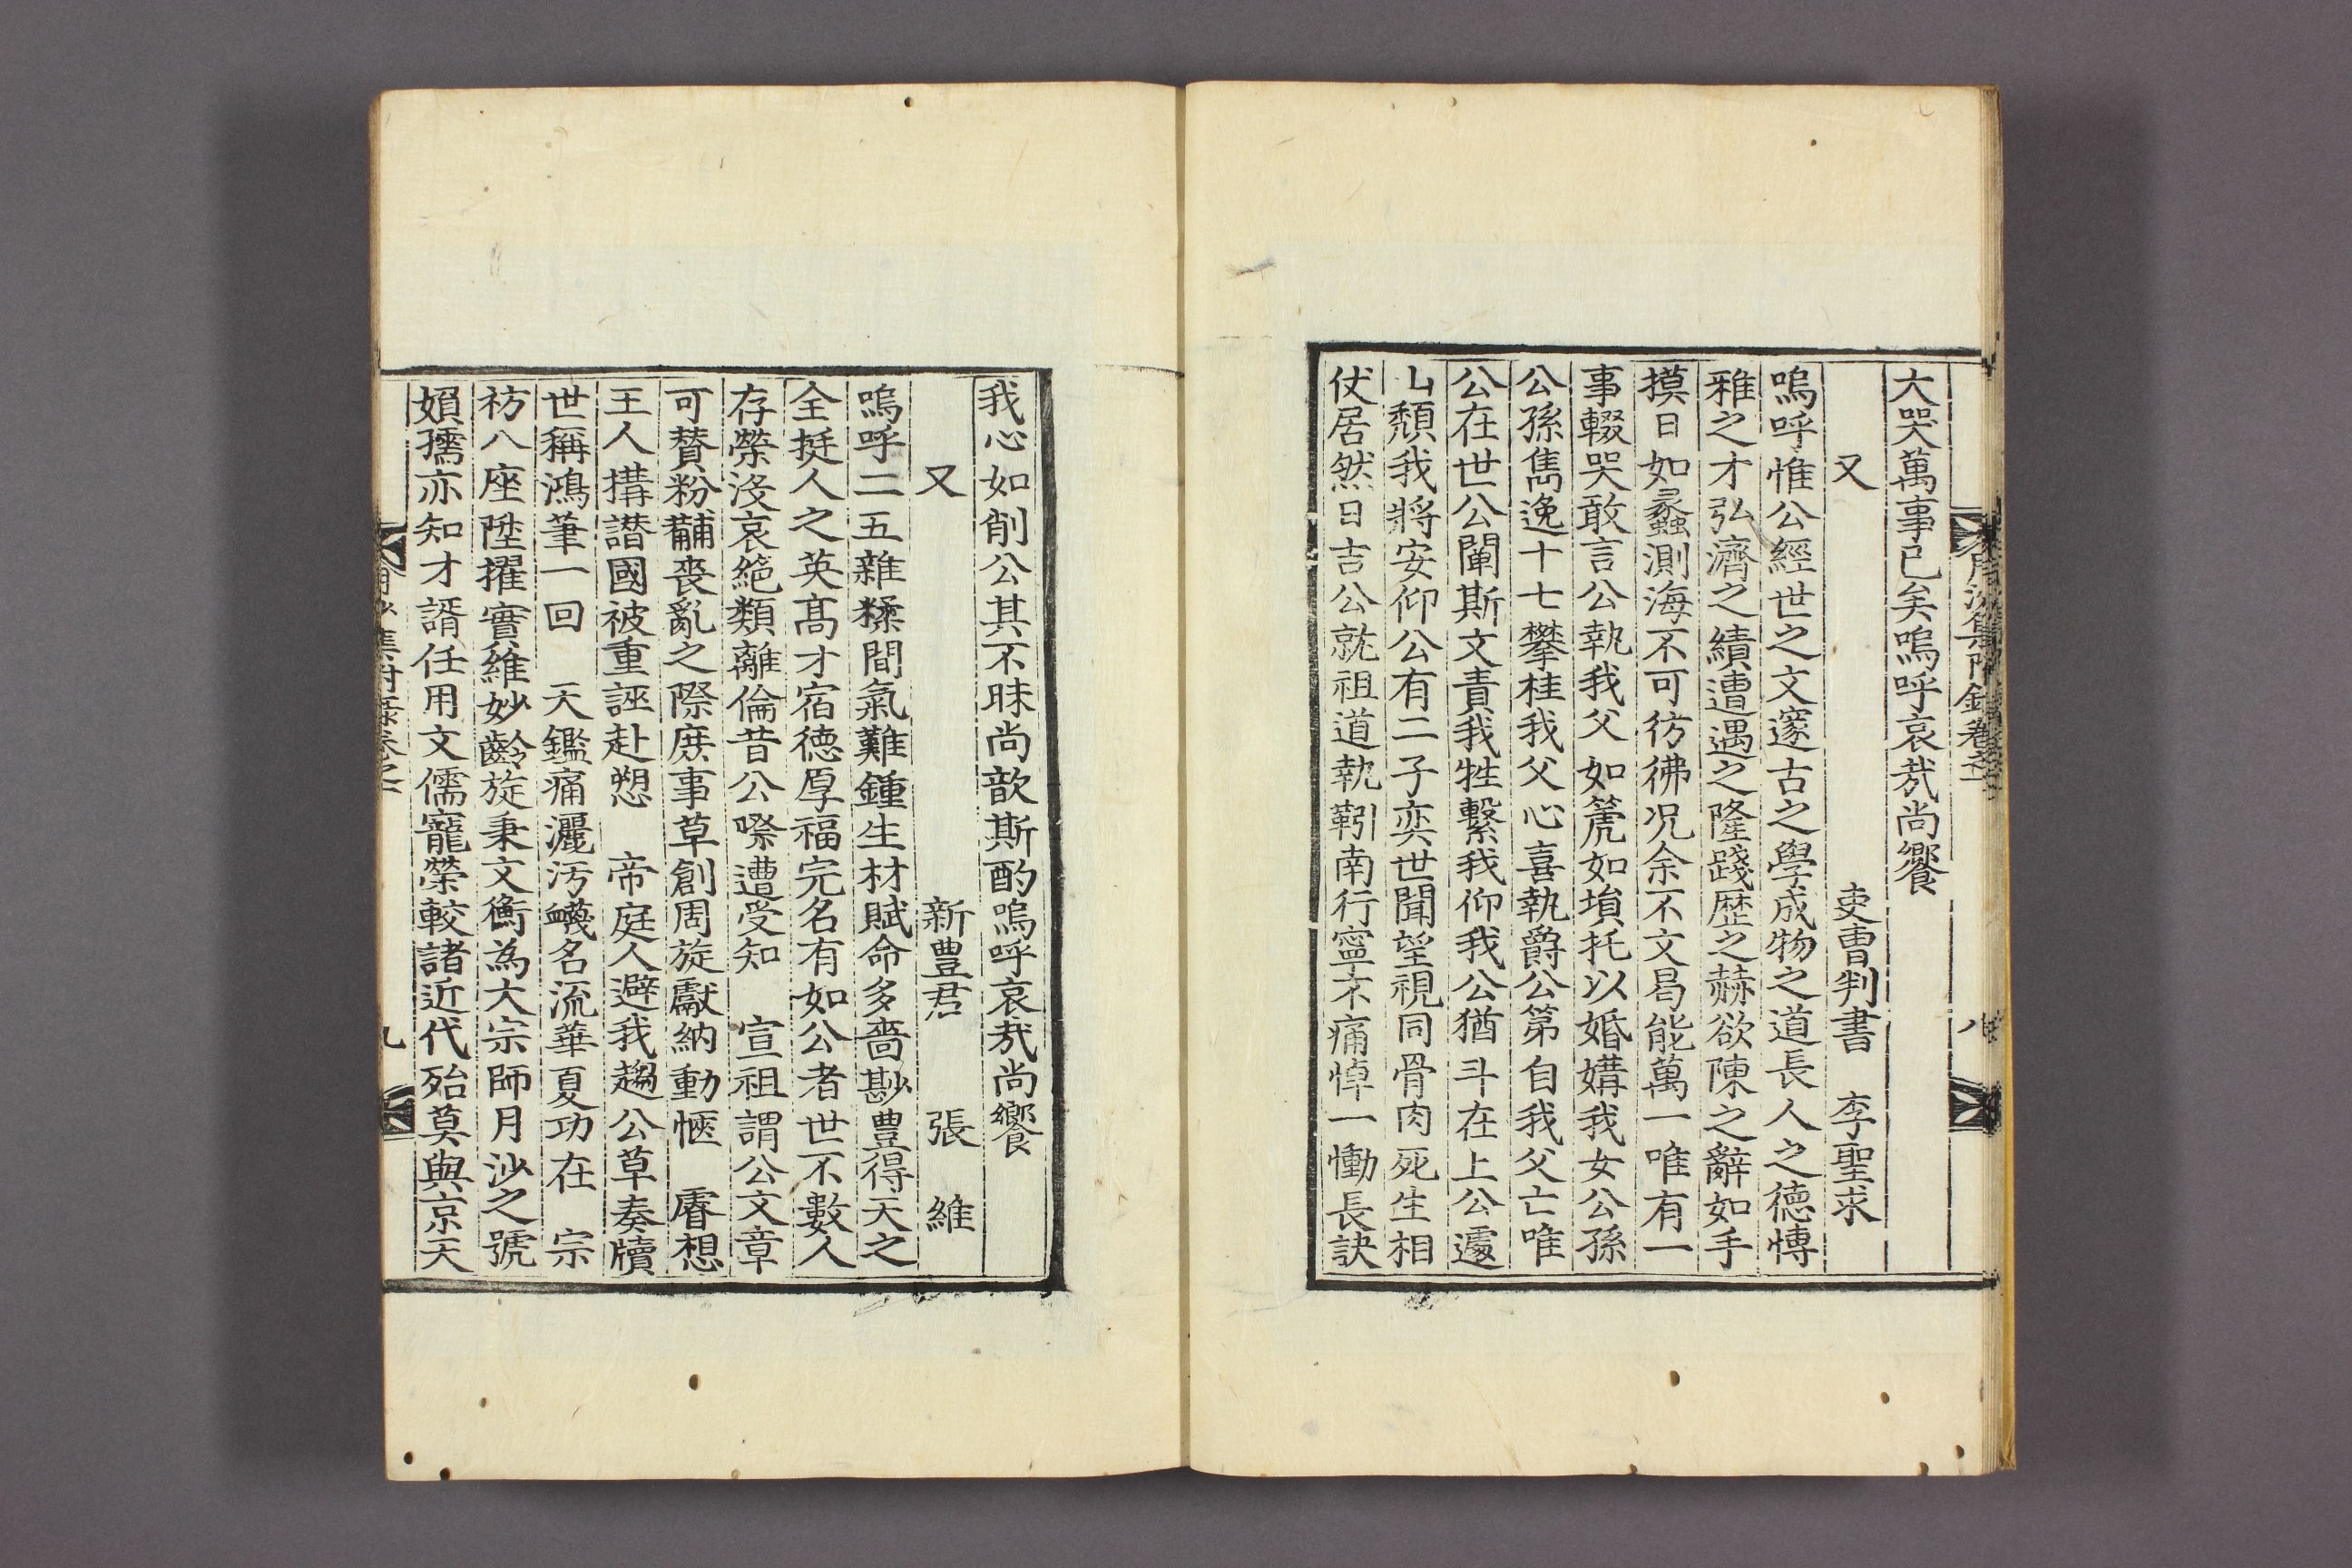 月沙集附錄卷之二
八
大哭萬事已矣嗚呼哀哉尚饗
又
吏曹判書 李聖求
嗚呼惟公經世之文邃古之學成物之道長人之德博
雅之才弘濟之績遭遇之隆踐歷之赫欲陳之辭如手
摸日如蠡測海不可彷彿况余不文曷能萬一唯有一
事輟哭敢言公執我父如篪如塤托以婚媾我女公孫
公孫雋逸十七攀桂我父心喜執爵公第自我父亡唯
公在世公闡斯文責我牲繫我仰我公猶斗在上公遽
山頹我將安仰公有二子奕世聞望視同骨肉死生相
仗居然日吉公就祖道執靷南行寧不痛悼一慟長訣
我心如削公其不昧尚歆斯酌嗚呼哀哉尚饗
又
新豊君 張 維
嗚呼二五雜糅間氣難鍾生材賦命多嗇尠豊得天之
全挺人之英高才宿德厚福完名有如公者世不數人
存榮沒哀絕類離倫昔公際遭受知 宣祖謂公文章
可賛粉黼喪亂之際庶事草創周旋獻納動愜 睿想
王人搆譖國被重誣赴愬 帝庭人避我趨公草奏牘
世稱鴻筆一回 天鑑痛灑汚衊名流華夏功在 宗
祊八座陞擢實維妙齡旋秉文衡為大宗師月沙之號
嬰孺亦知才諝任用文儒寵榮較諸近代殆莫與京天
月沙集附錄卷之二
九